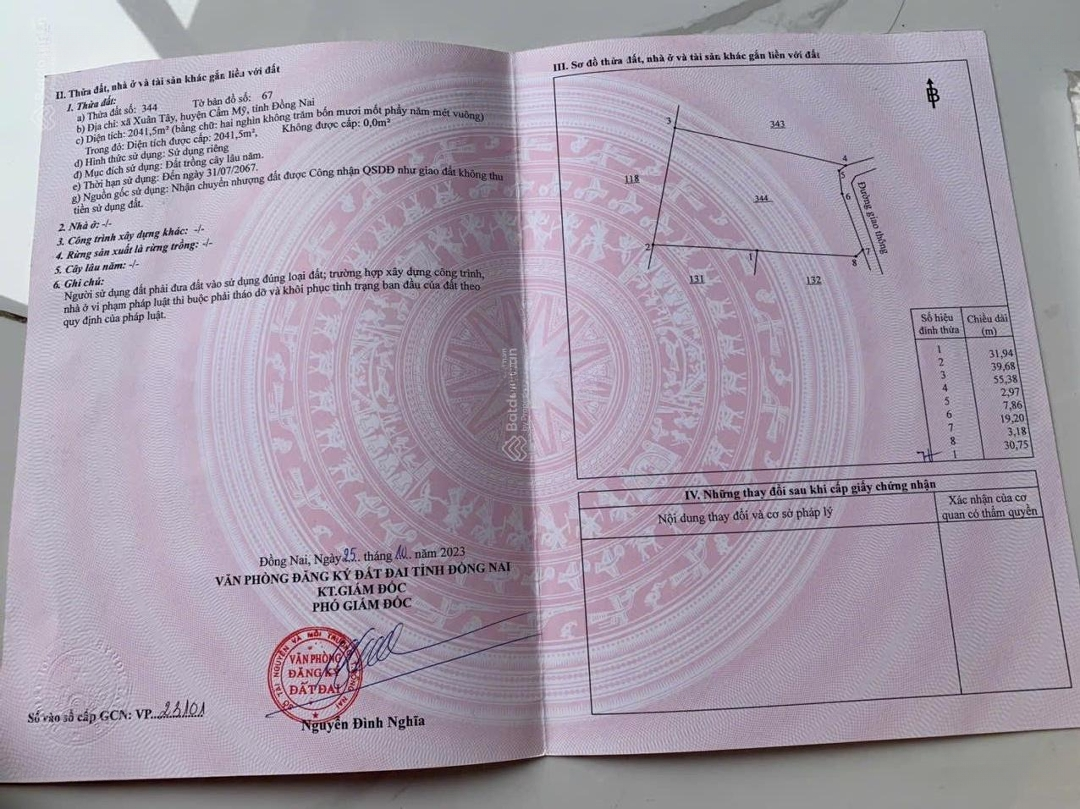 II. Thửa đất, nhà ở và tài sản khác gắn liền với đất
1. Thửa đất:
a) Thửa đất số: 344 Tờ bản đồ số: 67
b) Địa chỉ: xã Xuân Tây, huyện Cẩm Mỹ, tỉnh Đồng Nai
c) Diện tích: 2041,5m² (bằng chữ: hai nghìn không trăm bốn mươi mốt phẩy năm mét vuông)
Trong đó: Diện tích được cấp: 2041,5m², Không được cấp: 0,0m²
d) Hình thức sử dụng: Sử dụng riêng
đ) Mục đích sử dụng: Đất trồng cây lâu năm.
e) Thời hạn sử dụng: Đến ngày 31/07/2067.
g) Nguồn gốc sử dụng: Nhận chuyển nhượng đất được Công nhận QSDĐ như giao đất không thu
tiền sử dụng đất.
2. Nhà ở: -/-
3. Công trình xây dựng khác: -/-
4. Rừng sản xuất là rừng trồng: -/-
5. Cây lâu năm: -/-
6. Ghi chú:
Người sử dụng đất phải đưa đất vào sử dụng đúng loại đất; trường hợp xây dựng công trình,
nhà ở vi phạm pháp luật thì buộc phải tháo dỡ và khôi phục tình trạng ban đầu của đất theo
quy định của pháp luật.
Đồng Nai, Ngày 25 tháng 10 năm 2023
VĂN PHÒNG ĐĂNG KÝ ĐẤT ĐAI TỈNH ĐỒNG NAI
KT.GIÁM ĐỐC
PHÓ GIÁM ĐỐC
SỞ TÀI NGUYÊN VÀ MÔI TRƯỜNG ĐỒNG NAI
VĂN PHÒNG
ĐĂNG KÝ
ĐẤT ĐAI
Nguyễn Đình Nghĩa
Số vào sổ cấp GCN: VP...23101
Batdongsan
III. Sơ đồ thửa đất, nhà ở và tài sản khác gắn liền với đất
B
3
343
4
118
5
344
6
Đường giao thông
2
1
7
8
131
132
Số hiệu đỉnh thửa Chiều dài (m)
1
31,94
2
39,68
3
55,38
4
2,97
5
7,86
6
19,20
7
3,18
8
30,75
1
IV. Những thay đổi sau khi cấp giấy chứng nhận
Nội dung thay đổi và cơ sở pháp lý
Xác nhận của cơ
quan có thẩm quyền